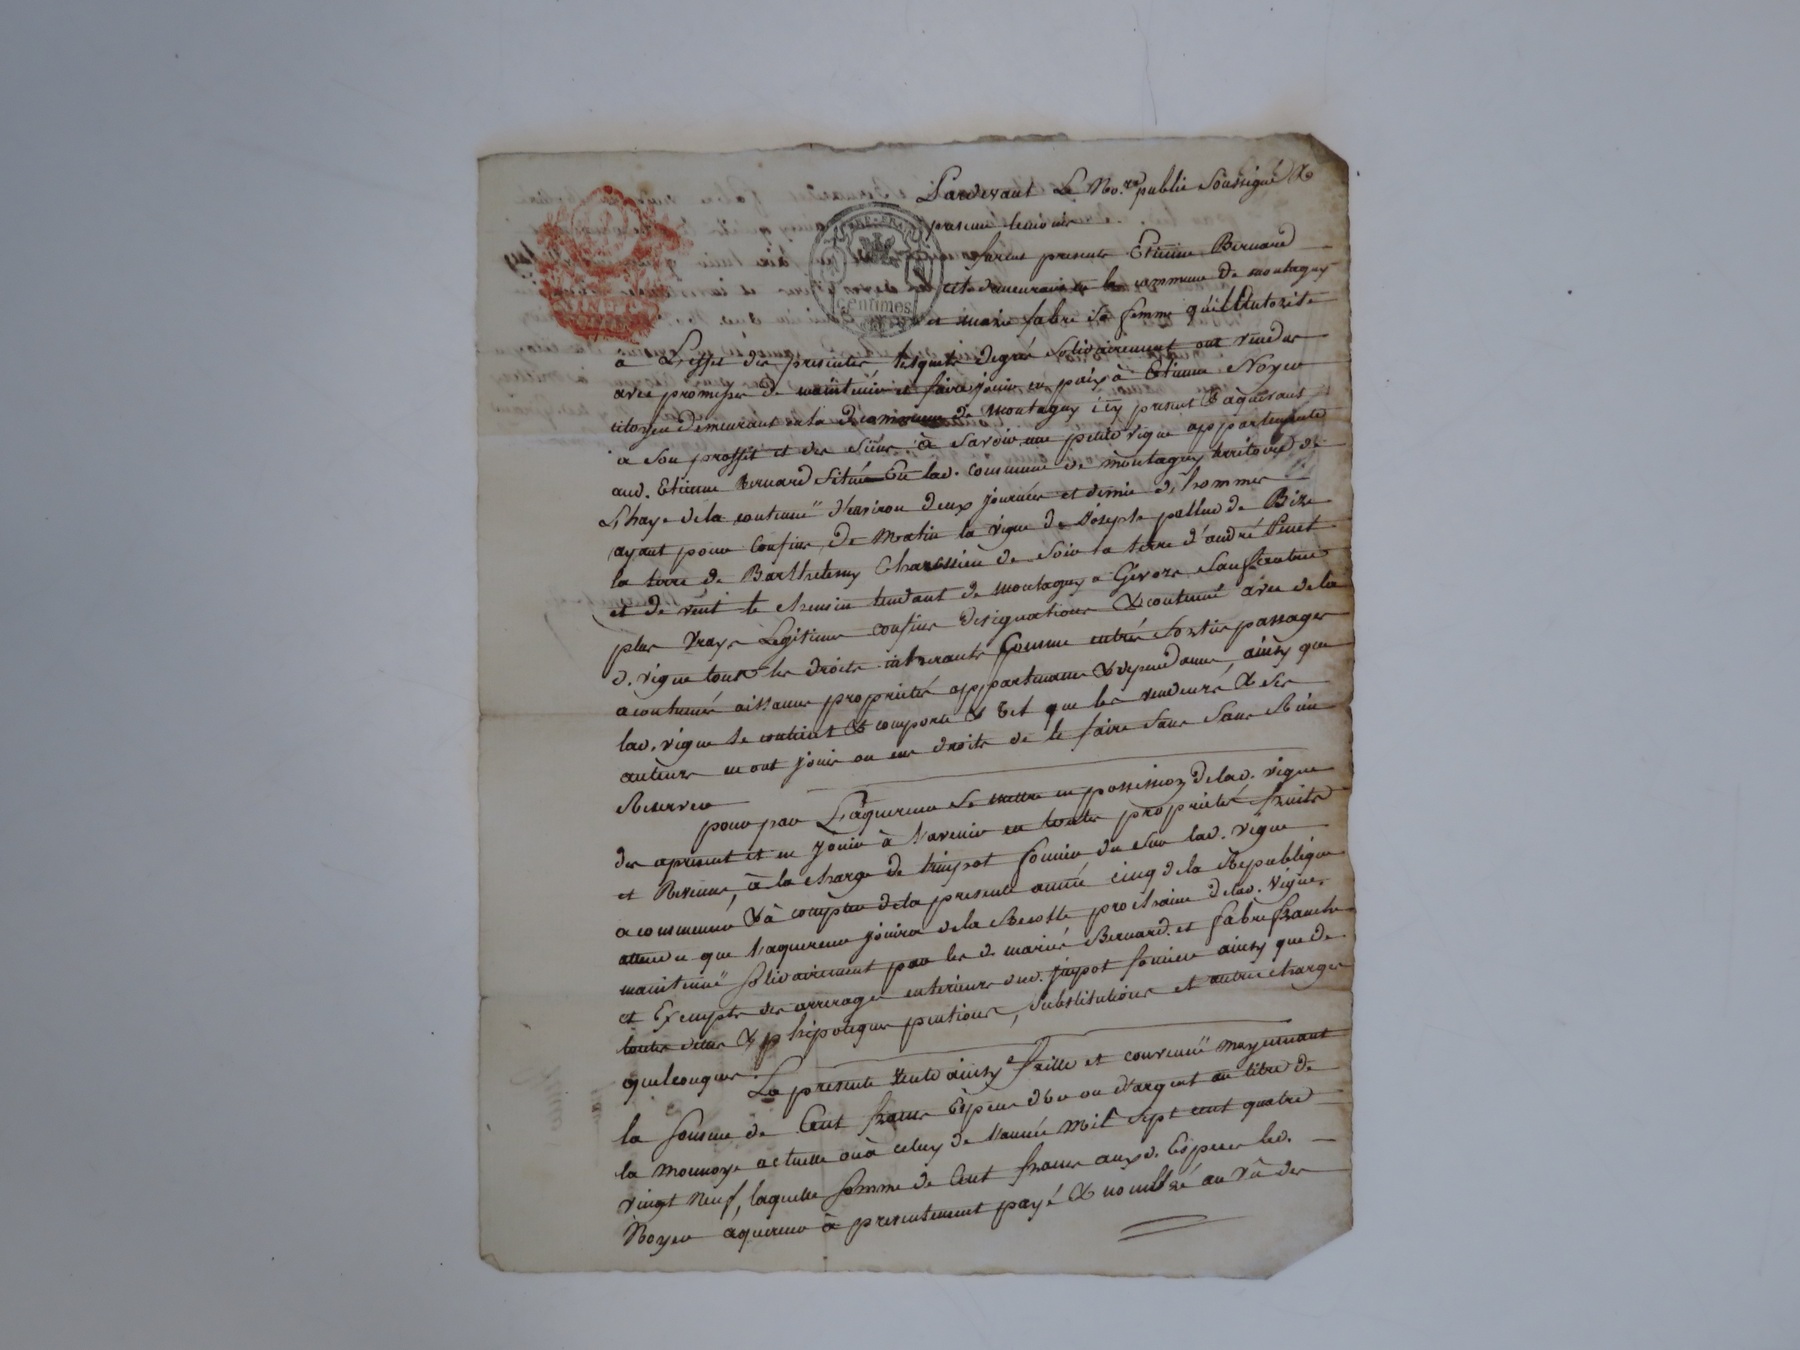 Pardevant Le No.re public soussigné &
presens temoins
furent presents Etienne Bernard
cit. demeurant en la commune de montagny
et marie fabre sa femme qu'il Autorise
a L'effet des presentes lesquels degré solidairement ont vendus
avec promesse de maintenir et faire jouir en paix à Etienne Noyer
citoyen demeurant en la d. commune de Montagny icy present & aquerant
a son proffit et des siens à savoir une petite vigne appartenante
aud. Etienne Bernard située En lad. commune de montagny territoire de
L'haye de la contenue d'environ deux journées et demie d'hommes
ayant pour confins de Matin la vigne de Joseph pallue de Bize
la terre de Barthelemy Charessieu de soir la terre d'andré Pinet
et de vent le chemin tendant de montagny a Givors sauf autres
plus vrays Legitimes confins designations & contenue avec de la
d. vigne tous les droits inherants comme entrées sorties passages
acoutumés aisances proprietés appartenances & dependances, ainsy que
lad. vigne se contient & comporte & tel que les vendeurs & ses
auteurs en ont jouis ou eus droits de le faire sans sans Rien
Reserver
pour par L'aquereur se mettre en possession de lad. vigne
des apresent et en jouir à l'avenir en toutes proprietés fruits
et Revenus, à la charge de l'impot foncier du sur lad. vigne
a commencer & à compter de la presente année cinq de la Republique
attendu que l'aquereur jouira de la Recolte prochaine de lad. vigne,
maintenue solidairement par les d. mariés Bernard et fabre franche
et Exempte des arrerages anterieurs dud. impot foncier ainsy que de
toutes dettes & hipoteques pentions, substitutions et autres charges
quelconques.
La presente vente ainsy faitte et convenue moyennant
la somme de Cent francs Espece d'or ou d'argent au titre de
la monnoye actuelle ou à celuy de l'année mil sept cent quatre
vingt neuf, laquelle somme de Cent francs auxd. Especes led.
Noyer aquereur à presentement payé & nombré au vû des
centimes